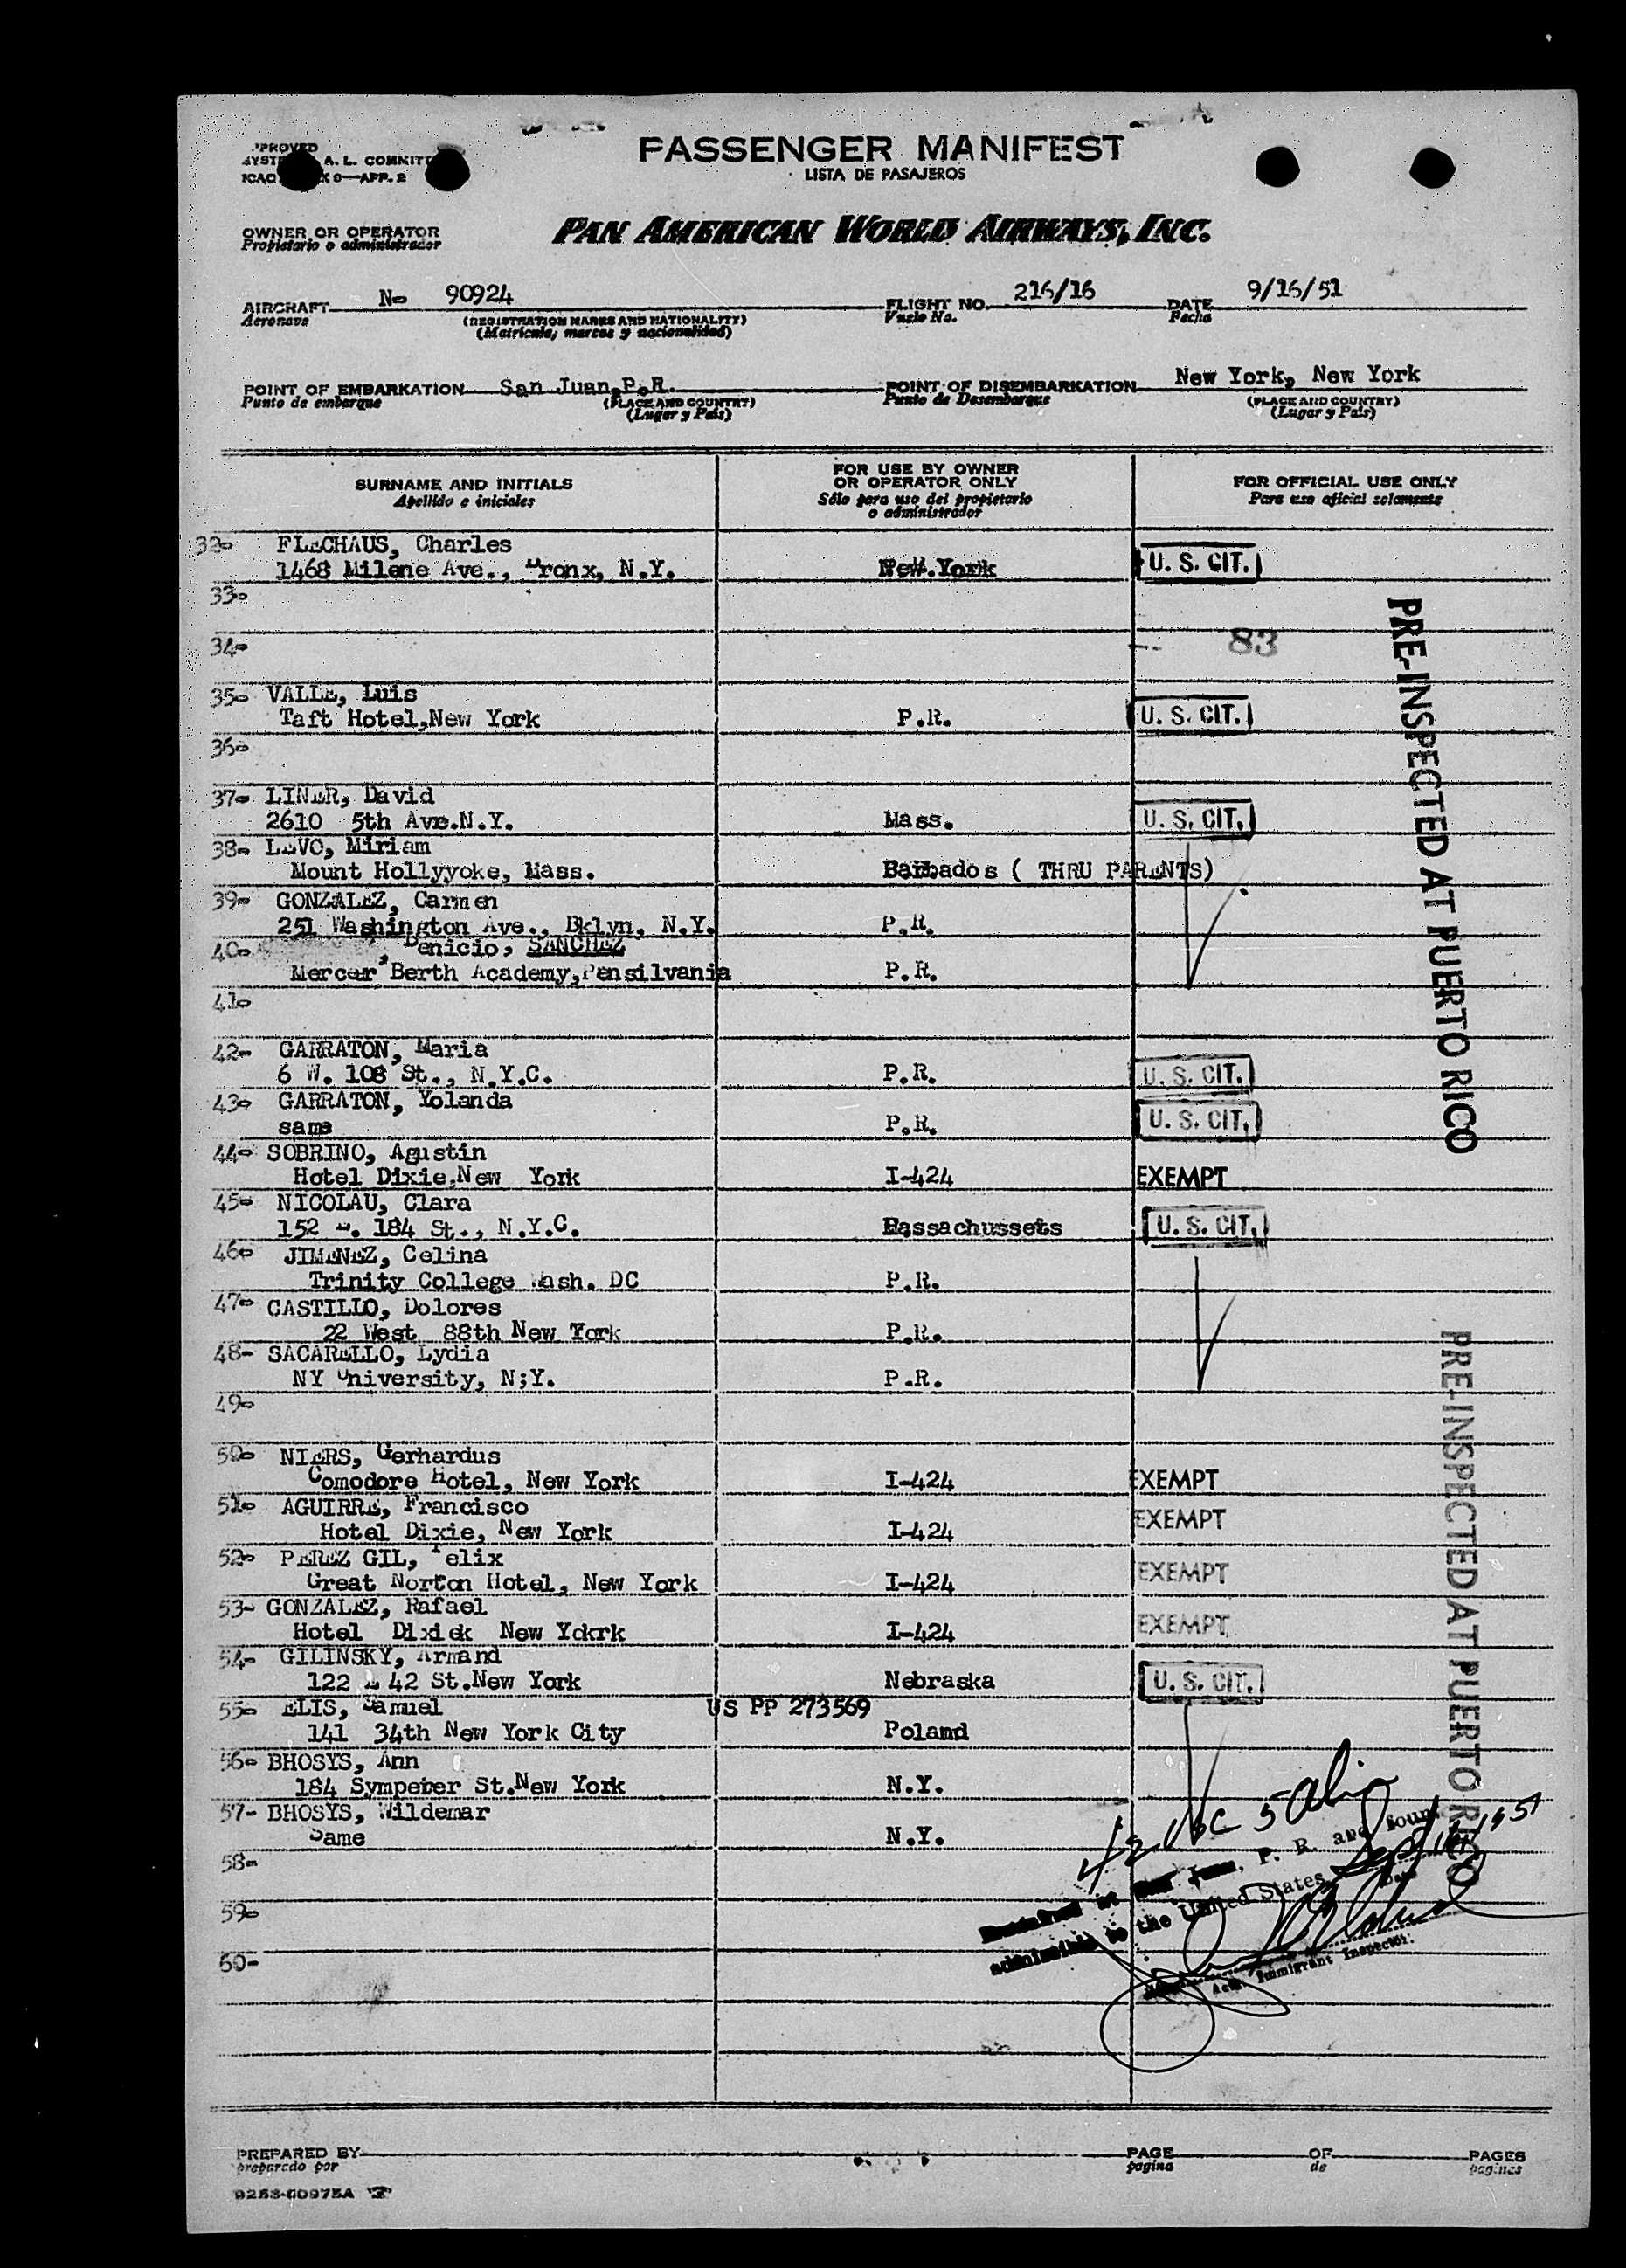 PASSENGER MANIFEST
LISTA DE PASAJEROS
A. L.
APP. 2
OWNER OR OPERATOR
Propietario o administrador
PAN AMERICAN WORLD AIRWAYS, INC.
AIRCRAFT No 90924 FLIGHT NO. 216/16 DATE 9/16/51
Aeronave (REGISTRATION MARKS AND NATIONALITY) Vuelo No. Fecha
(Matricula, marcas y nacionalidad)
POINT OF EMBARKATION San Juan,P.R. POINT OF DISEMBARKATION New York, New York
Punto de embarque (PLACE AND COUNTRY) Punto de Desembarque (PLACE AND COUNTRY)
(Lugar y Pais) (Lugar y Pais)
SURNAME AND INITIALS FOR USE BY OWNER OR OPERATOR ONLY FOR OFFICIAL USE ONLY
Apellido e iniciales Sólo para uso del propietario o administrador Para uso oficial solamente
32- FLECHAUS, Charles
1468 Milene Ave., Bronx, N.Y. New York U. S. CIT.
33-
34- 83
35- VALLE, Luis
Taft Hotel,New York P.R. U. S. CIT.
36-
37- LINER, David
2610 5th Ave.N.Y. Mass. U. S. CIT.
38- LEVO, Miriam
Mount Hollyyoke, Mass. Barbados ( THRU PARENTS)
39- GONZALEZ, Carmen
251 Washington Ave., Bklyn, N.Y. P.R.
40- , Benicio, SANCHEZ
Mercer Berth Academy,Pensilvania P.R.
41-
42- GARRATON, Maria
6 W. 108 St., N.Y.C. P.R. U. S. CIT.
43- GARRATON, Yolanda
same P.R. U. S. CIT.
44- SOBRINO, Agustin
Hotel Dixie,New York I-424 EXEMPT
45- NICOLAU, Clara
152 W. 184 St., N.Y.C. Massachussets U. S. CIT.
46- JIMENEZ, Celina
Trinity College Wash. DC P.R.
47- CASTILLO, Dolores
22 West 88th New York P.R.
48- SACARELLO, Lydia
NY University, N;Y. P.R.
49-
50- NIERS, Gerhardus
Comodore Hotel, New York I-424 EXEMPT
51- AGUIRRE, Francisco
Hotel Dixie, New York I-424 EXEMPT
52- PEREZ GIL, Felix
Great Norton Hotel, New York I-424 EXEMPT
53- GONZALEZ, Rafael
Hotel Dixiek New Yckrk I-424 EXEMPT
54- GILINSKY, Armand
122 E 42 St.New York Nebraska U. S. CIT.
55- ELIS, Samuel US PP 273569
141 34th New York City Poland
56- BHOSYS, Ann
184 Sympeber St.New York N.Y.
57- BHOSYS, Wildemar
Same N.Y.
58-
59-
60-
PRE-INSPECTED AT PUERTO RICO
PRE-INSPECTED AT PUERTO RICO
5 Alien
Examined at San Juan, P. R. and found
admissible to the United States Sept 16 1951
Date
Immigrant Inspector.
PREPARED BY PAGE OF PAGES
preparado por pagina de paginas
9253-60975A